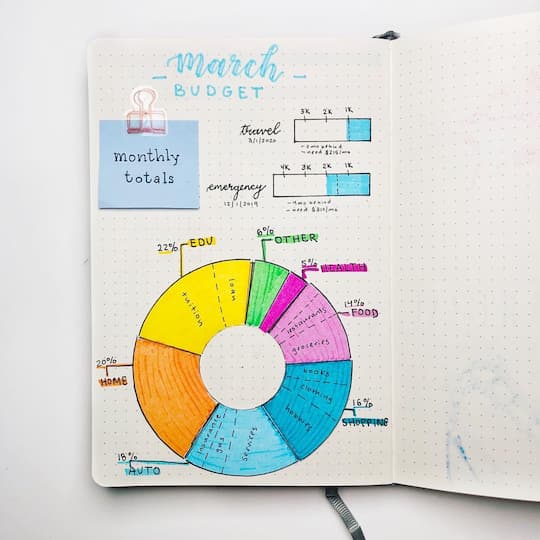 March
BUDGET
monthly
totals
travel
3/1/2020
3K 2K 1K
emergency
12/1/2019
4K 3K 2K 1K
22% EDU
tuition
loan
6% OTHER
5% HEALTH
14% FOOD
restaurants
groceries
16%
SHOPPING
books
clothing
hobbies
18%
AUTO
insurance
gas
services
20%
HOME